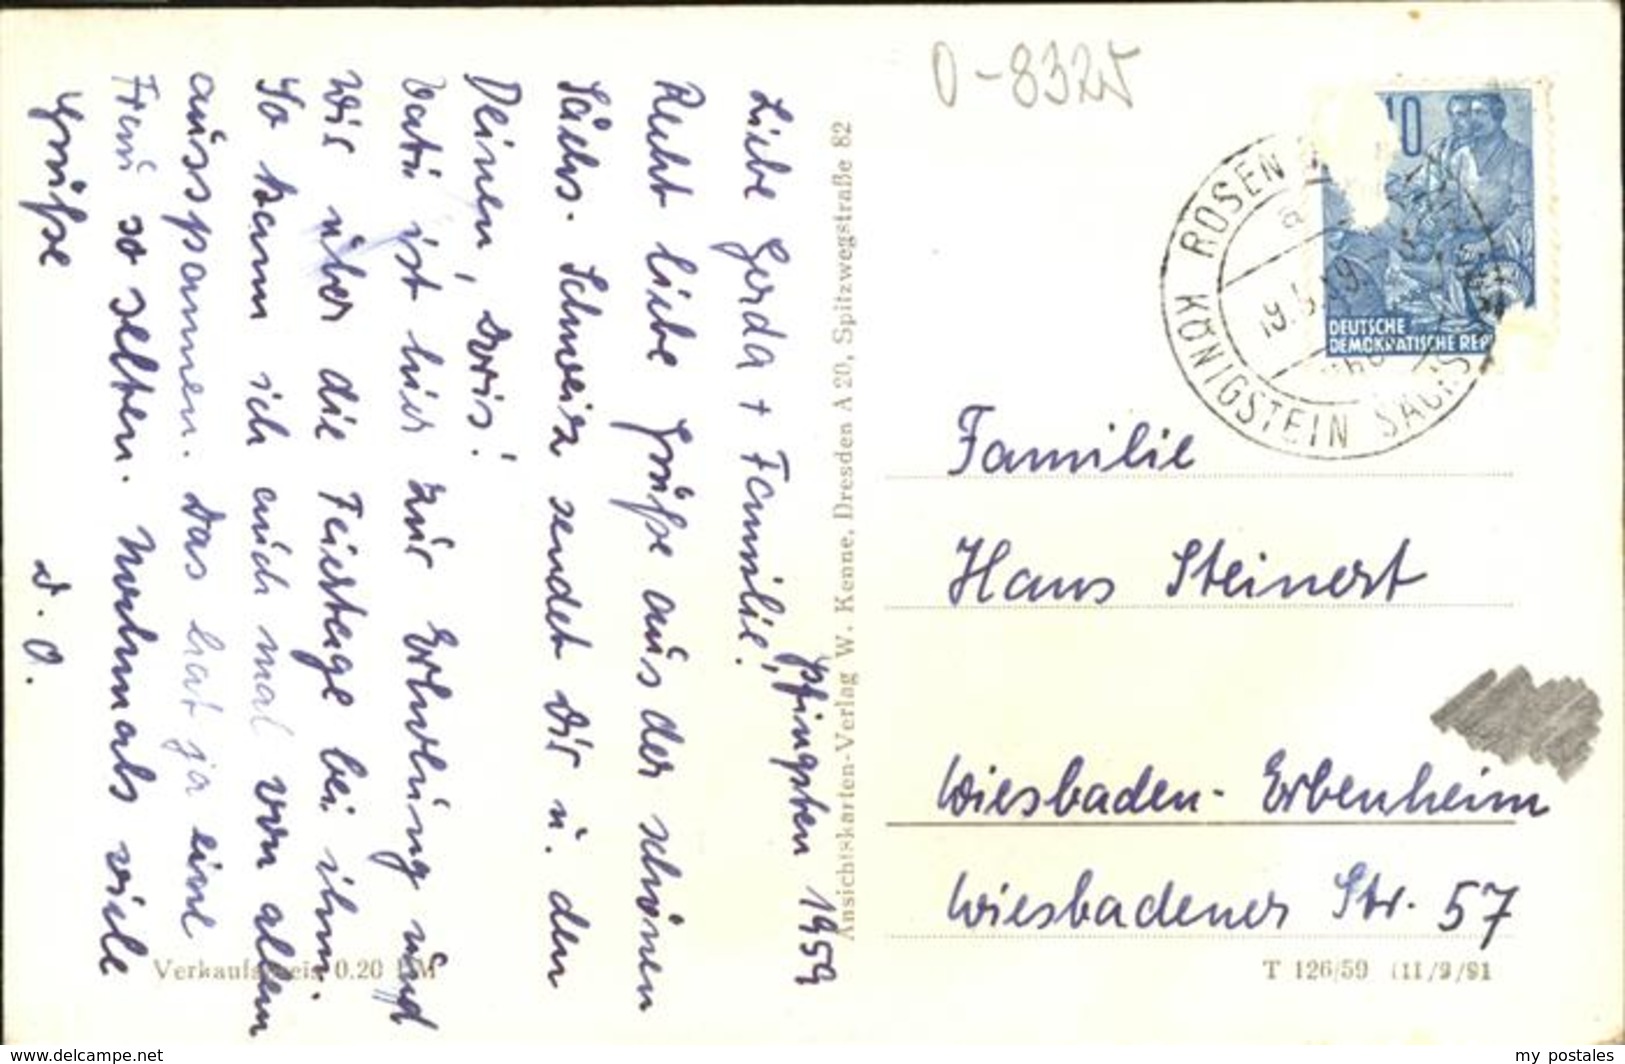 O-8325
Pfingsten 1959
Liebe Gerda + Familie!
Recht liebe Grüße aus der schönen
Sächs. Schweiz sendet Dir u. den
Deinen, Doris!
Vati ist hier zur Erholung und
wir über die Feiertage bei ihm.
So kann ich auch mal von allem
ausspannen. Das hat ja eine
Frau so selten. Nochmals viele
Grüße
D. O.
Ansichtskarten-Verlag W. Kenne, Dresden A 20, Spitzwegstraße 82
10
DEUTSCHE
DEMOKRATISCHE REP
ROSEN
KÖNIGSTEIN SÄCHS
Familie
Hans Steinert
Wiesbaden-Erbenheim
Wiesbadener Str. 57
Verkaufspreis 0.20 DM
T 126/59 (11/9/91
www.delcampe.net
my_postales